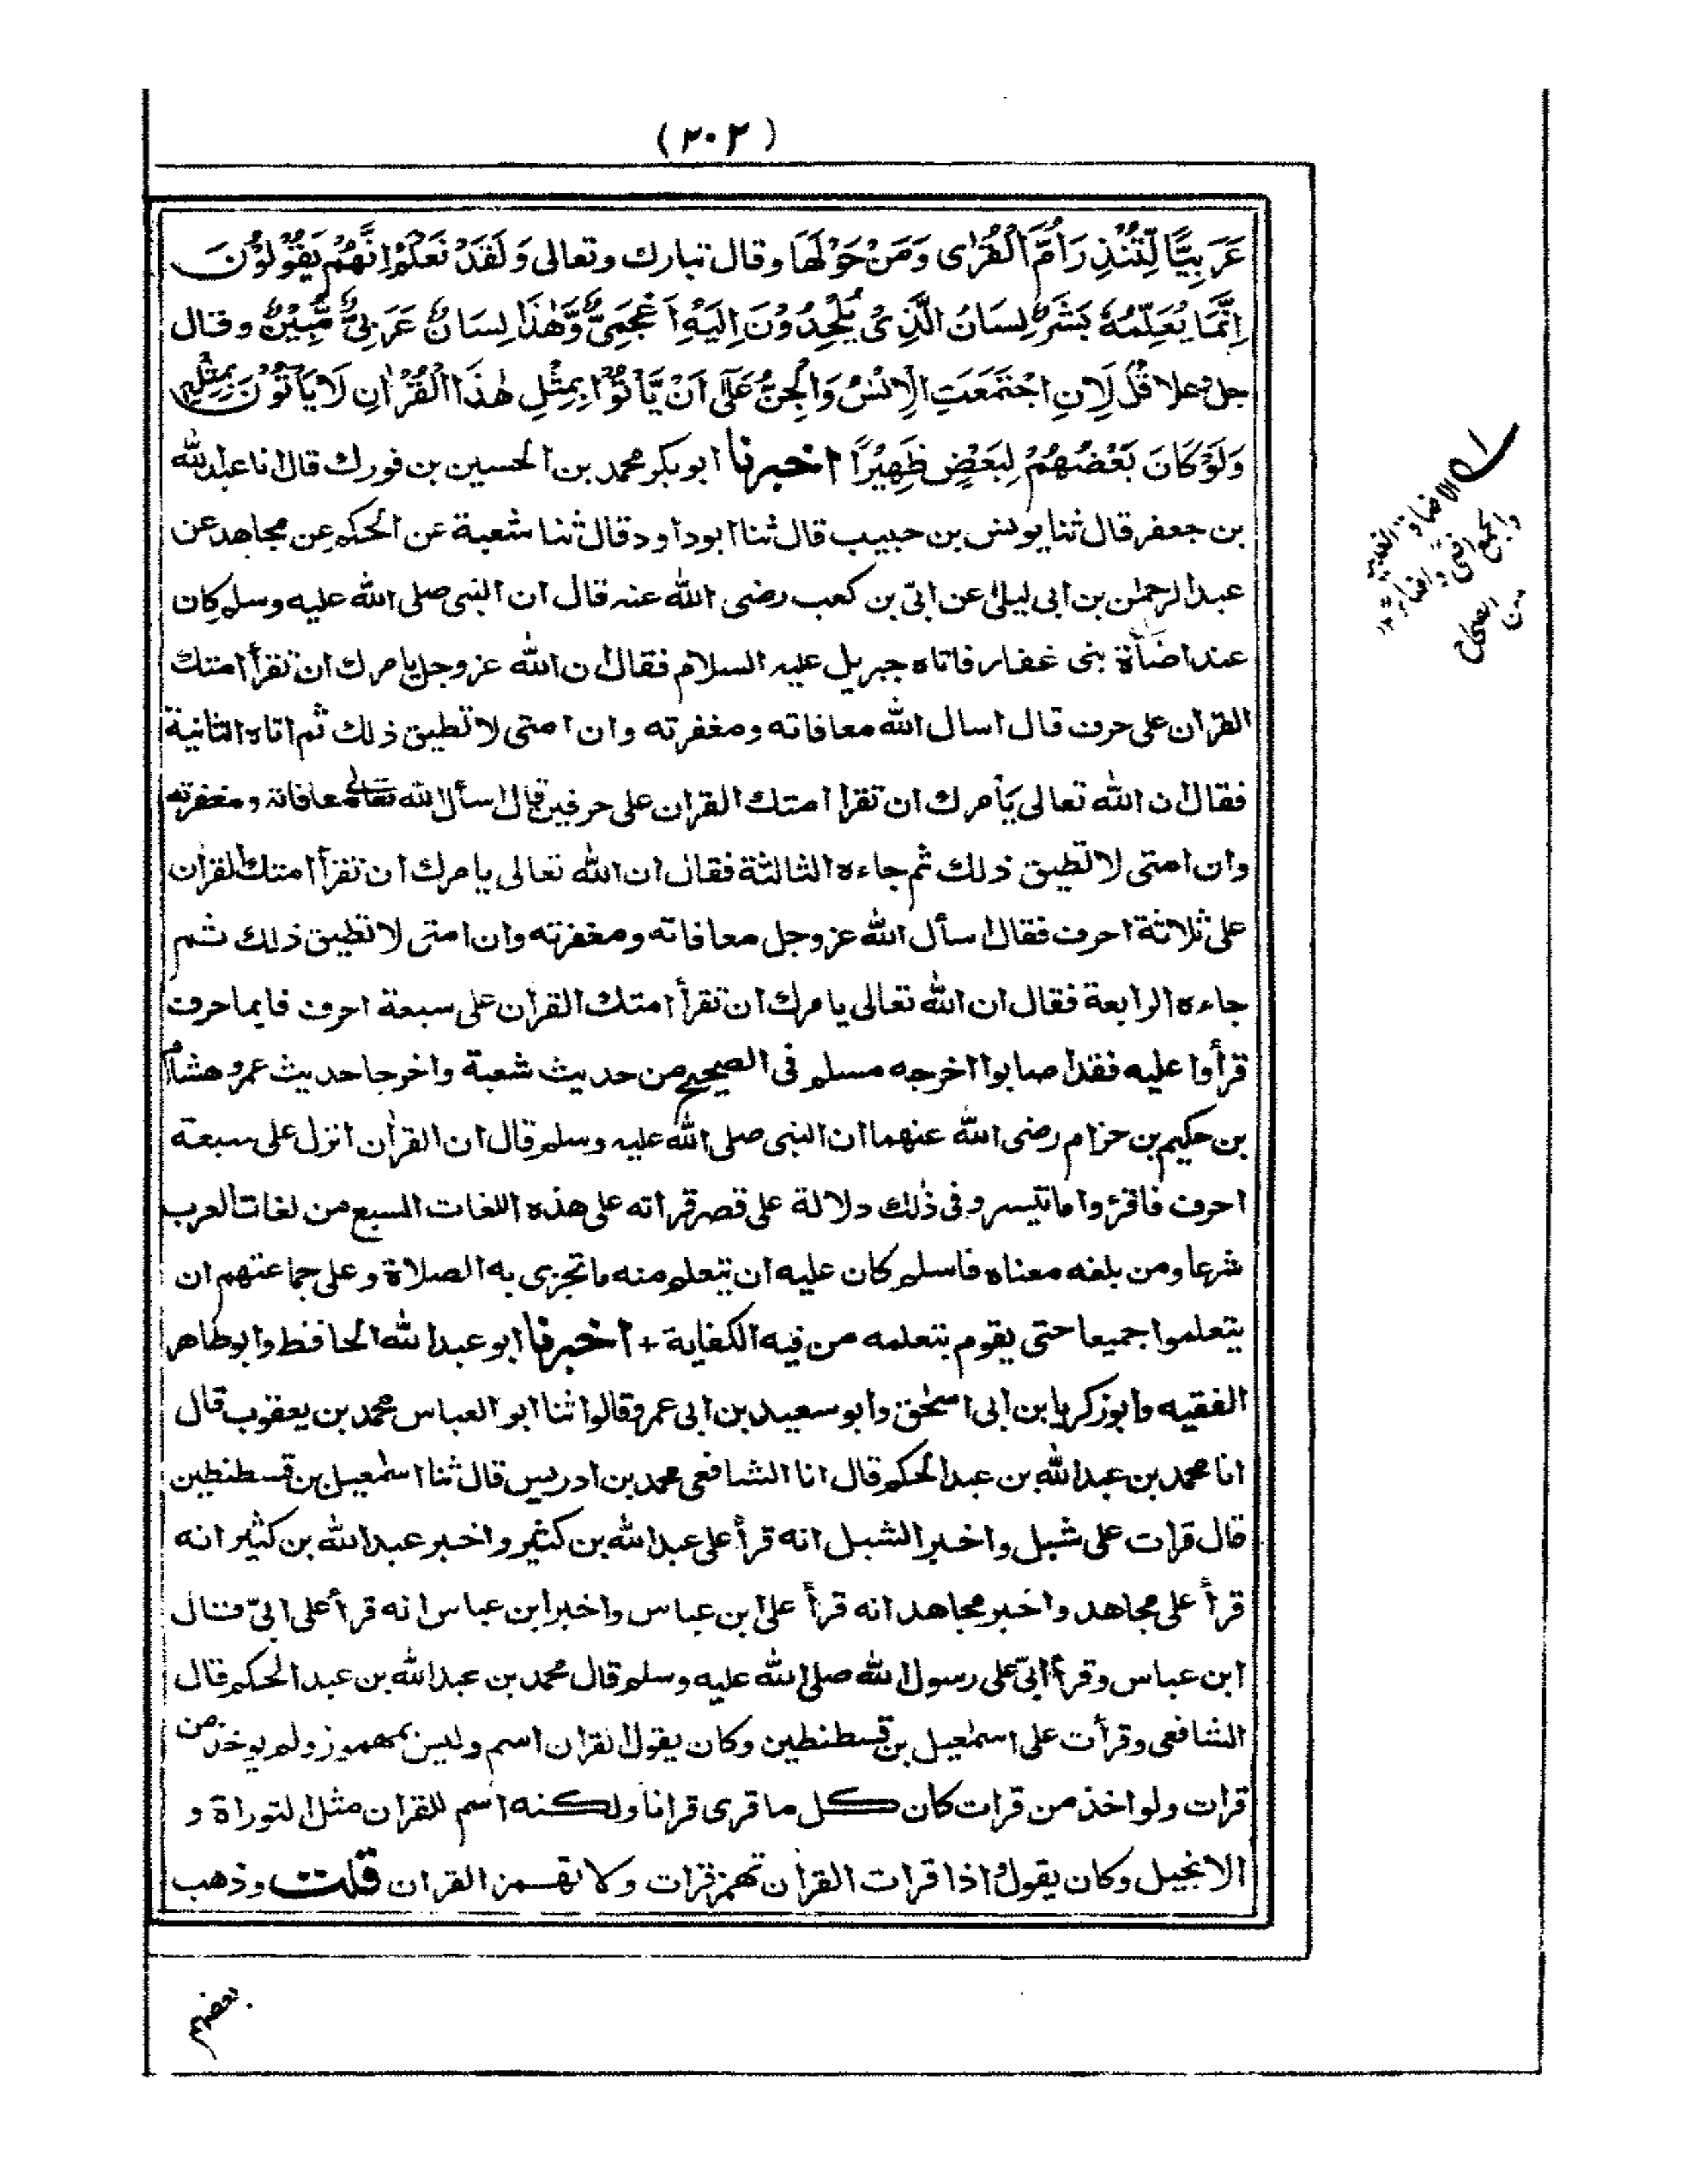 (٢٠٢)
عَرَبِيًّا لِّتُنْذِرَ اُمَّ الْقُرٰى وَمَنْ حَوْلَهَا وقال تبارك وتعالى وَلَقَدْ نَعْلَمُ اَنَّهُمْ يَقُوْلُوْنَ
اِنَّمَا يُعَلِّمُهٗ بَشَرٌ لِسَانُ الَّذِىْ يُلْحِدُوْنَ اِلَيْهِ اَعْجَمِىٌّ وَّهٰذَا لِسَانٌ عَرَبِىٌّ مُّبِيْنٌ وقال
جل وعلا قُلْ لَّئِنِ اجْتَمَعَتِ الْاِنْسُ وَالْجِنُّ عَلٰٓى اَنْ يَّاْتُوْا بِمِثْلِ هٰذَا الْقُرْاٰنِ لَا يَاْتُوْنَ بِمِثْلِهٖ
وَلَوْ كَانَ بَعْضُهُمْ لِبَعْضٍ ظَهِيْرًا اخبرنا ابوبكر محمد بن الحسين بن فورك قال انا عبد الله
بن جعفر قال ثنا يونس بن حبيب قال ثنا ابوداود قال ثنا شعبة عن الحكم عن مجاهد عن
عبد الرحمٰن بن ابى ليلىٰ عن ابىّ بن كعب رضى الله عنه قال ان النبى صلى الله عليه وسلم كان
عند اضَأة بنى غفار فاتاه جبريل عليه السلام فقال ان الله عزوجل يامرك ان تقرأ امتك
القرآن على حرف قال اسال الله معافاته ومغفرته وان امتى لا تطيق ذلك ثم اتاه الثانية
فقال ان الله تعالى يأمرك ان تقرا امتك القران على حرفين قال اسأل الله تعالى معافاته ومغفرته
وان امتى لا تطيق ذلك ثم جاءه الثالثة فقال ان الله تعالى يامرك ان تقرأ امتك القرأن
على ثلاثة احرف فقال اسأل الله عزوجل معافاته ومغفرته وان امتى لا تطيق ذلك ثم
جاءه الرابعة فقال ان الله تعالى يامرك ان تقرأ امتك القرأن على سبعة احرف فايما حرف
قرأوا عليه فقد اصابوا اخرجه مسلم فى الصحيح من حديث شعبة واخرجا حديث عمر وهشام
بن حكيم بن حزام رضى الله عنهما ان النبى صلى الله عليه وسلم قال ان القرأن انزل على سبعة
احرف فاقرؤا ما تيسر وفى ذٰلك دلالة على قصر قرأته على هذه اللغات السبع من لغات العرب
شرعا ومن بلغه معناه فاسلم كان عليه ان يتعلم منه ما تجزى به الصلاة وعلى جماعتهم ان
يتعلموا جميعا حتى يقوم بتعلمه من فيه الكفاية + اخبرنا ابو عبد الله الحافظ وابوطاهر
الفقيه وابوزكريا بن ابى اسحٰق وابو سعيد بن ابى عمرو قالوا ثنا ابو العباس محمد بن يعقوب قال
انا محمد بن عبد الله بن عبد الحكم قال انا الشافعى محمد بن ادريس قال ثنا اسمٰعيل بن قسطنطين
قال قرات على شبل واخبر الشبل انه قرأ على عبد الله بن كثير واخبر عبد الله بن كثير انه
قرأ على مجاهد واخبر مجاهد انه قرأ على ابن عباس واخبر ابن عباس انه قرأ على ابىّ قال
ابن عباس وقرأ ابىّ على رسول الله صلى الله عليه وسلم قال محمد بن عبد الله بن عبد الحكم قال
الشافعى وقرأت على اسمٰعيل بن قسطنطين وكان يقول القران اسم وليس بمهموز ولم يوخذ من
قرات ولو اخذ من قرات كان كل ما قرى قرانا ولكنه اسم للقران مثل التوراة و
الانجيل وكان يقول اذا قرات القرأن تهمز قرات ولا تهمز القران قلت وذهب
الاضاة الغدير
والجمع اضى واضاء
من الصحاح
بعضهم